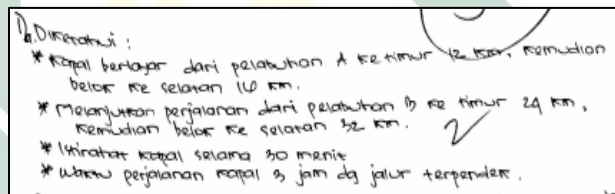 Diketahui :
* Kapal berlayar dari pelabuhan A ke timur 12 km, kemudian
belok ke selatan 16 km.
* Melanjutkan perjalanan dari pelabuhan B ke timur 24 km,
kemudian belok ke selatan 32 km.
* Istirahat kapal selama 30 menit
* Waktu perjalanan kapal 3 jam dg jalur terpendek.